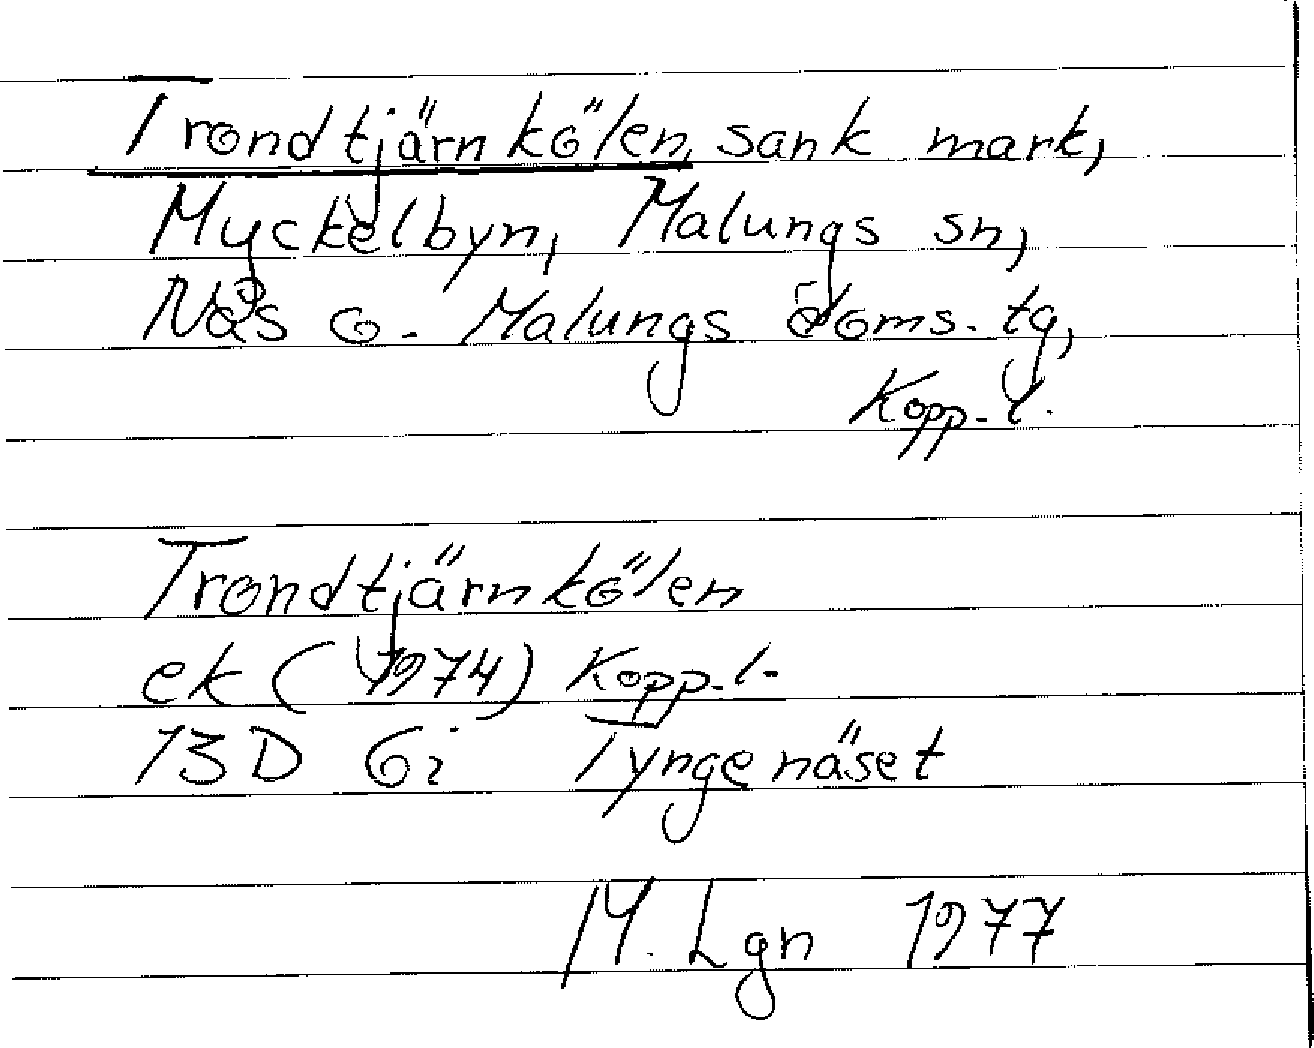 Trondtjärnkölen, sank mark,
Myckelbyn, Malungs sn,
Nås o. Malungs doms. tg,
Kopp. l.
Trondtjärnkölen
ek (1974) Kopp. l.
13D 6i Tyngenäset
M. Lgn 1977